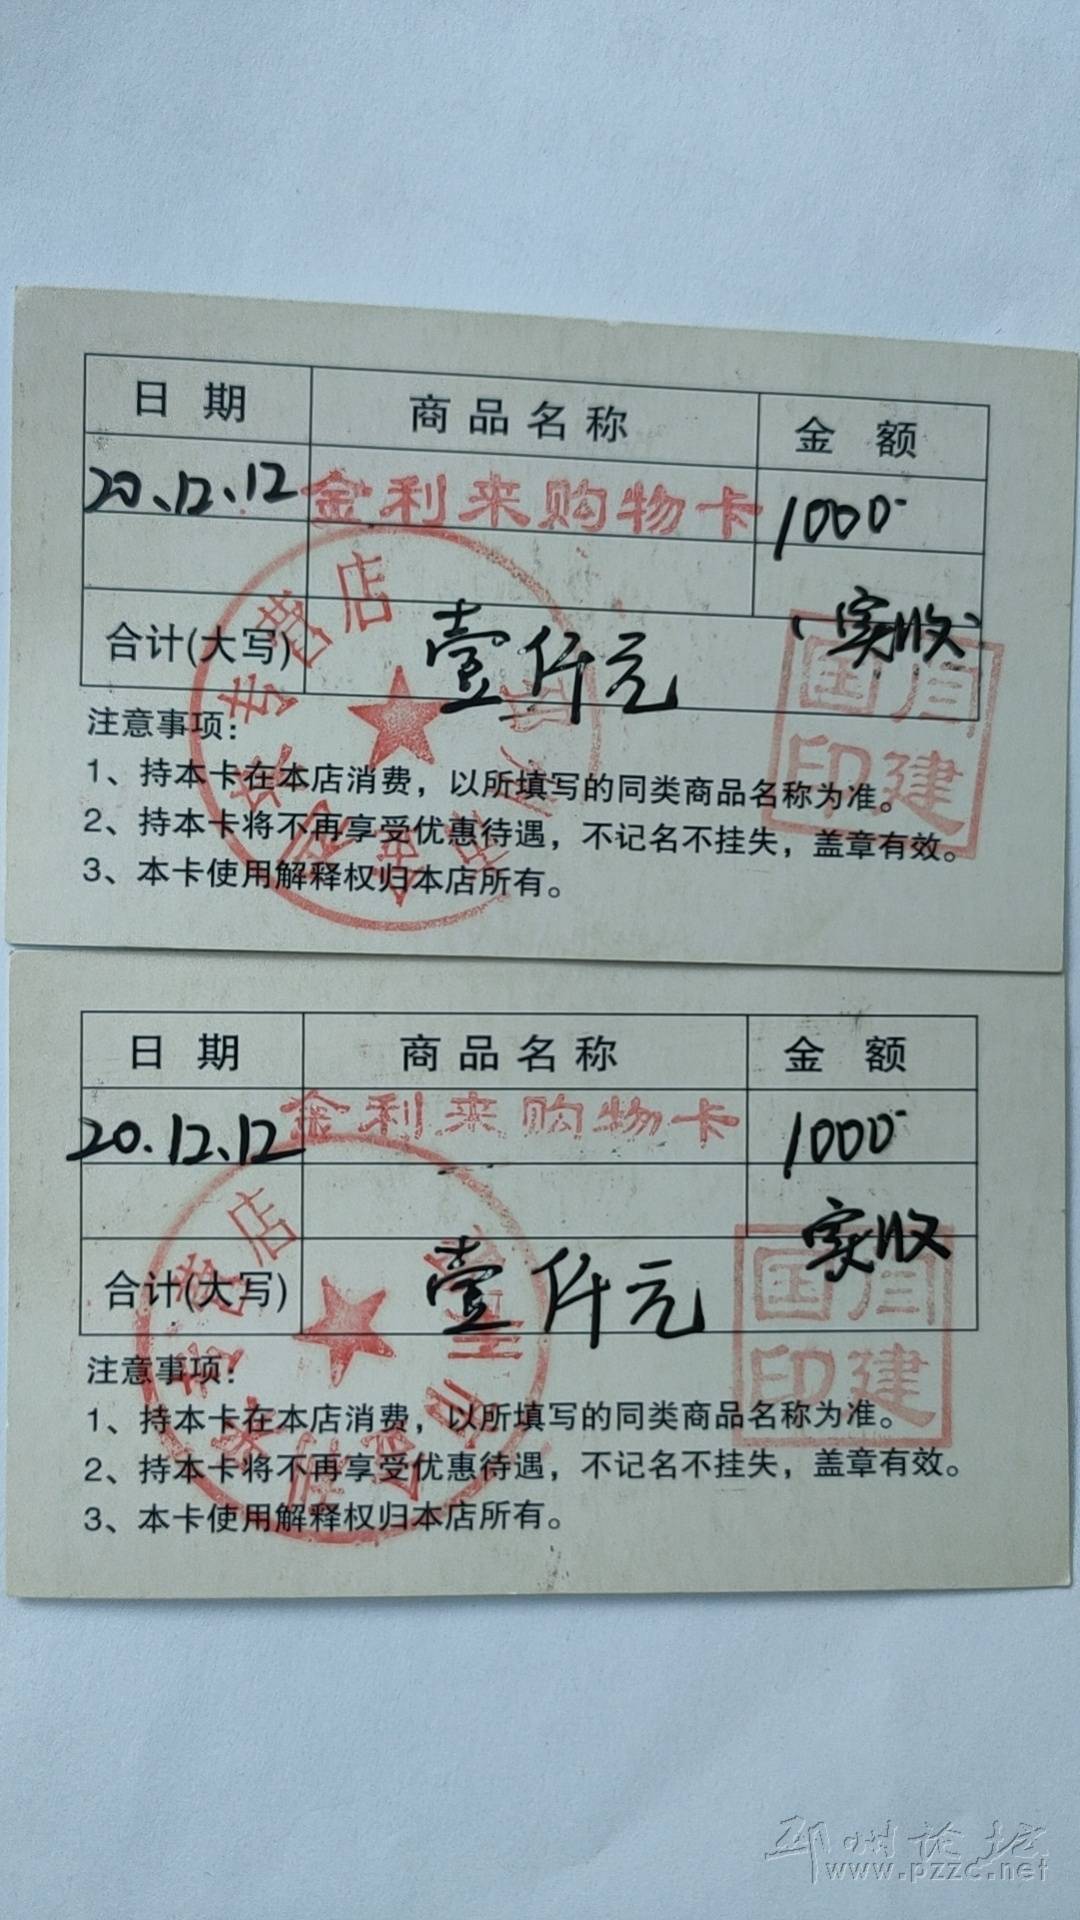 日期 商品名称 金额
20.12.12 金利来购物卡 1000
(实收)
合计(大写) 壹仟元
国眉
印建
专营店
注意事项:
1、持本卡在本店消费，以所填写的同类商品名称为准。
2、持本卡将不再享受优惠待遇，不记名不挂失，盖章有效。
3、本卡使用解释权归本店所有。
日期 商品名称 金额
20.12.12 金利来购物卡 1000
实收
合计(大写) 壹仟元
国眉
印建
专营店
注意事项:
1、持本卡在本店消费，以所填写的同类商品名称为准。
2、持本卡将不再享受优惠待遇，不记名不挂失，盖章有效。
3、本卡使用解释权归本店所有。
邳州论坛
www.pzzc.net